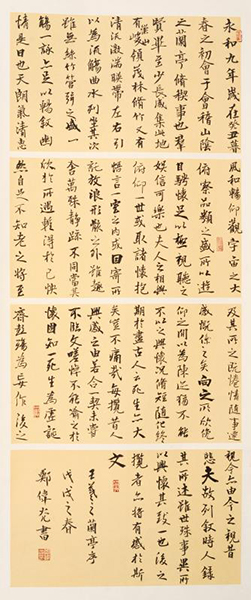 永和九年歲在癸丑暮
春之初會于會稽山陰
之蘭亭脩稧事也羣
賢畢至少長咸集此地
有崇山峻領茂林脩竹又有
清流激湍暎帶左右引
以為流觴曲水列坐其次
雖無絲竹管弦之盛一
觴一詠亦足以暢敘幽
情是日也天朗氣清惠
風和暢仰觀宇宙之大
俯察品類之盛所以遊
目騁懷足以極視聽之
娛信可樂也夫人之相與
俯仰一世或取諸懷抱
悟言一室之內或因寄所
託放浪形骸之外雖趣
舍萬殊靜躁不同當其
欣於所遇輒得於己快
然自足不知老之將至
及其所之既惓情隨事遷
感慨係之矣向之所欣俛
仰之間以為陳迹猶不能
不以之興懷況脩短隨化終
期於盡古人云死生亦大
矣豈不痛哉每攬昔人
興感之由若合一契未嘗
不臨文嗟悼不能喻之於
懷固知一死生為虛誕
齊彭殤為妄作後之
視今亦由今之視昔
悲夫故列敘時人錄
其所述雖世殊事異所
以興懷其致一也後之
攬者亦將有感於斯
文
王羲之蘭亭序
戊戌之春
鄭偉光書